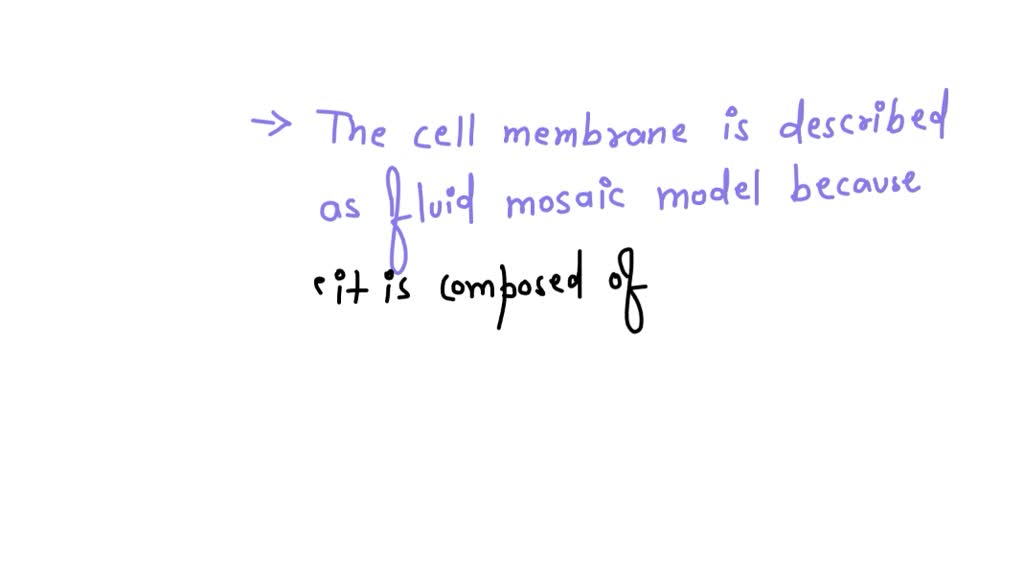 → The cell membrane is described
as fluid mosaic model because
it is composed of